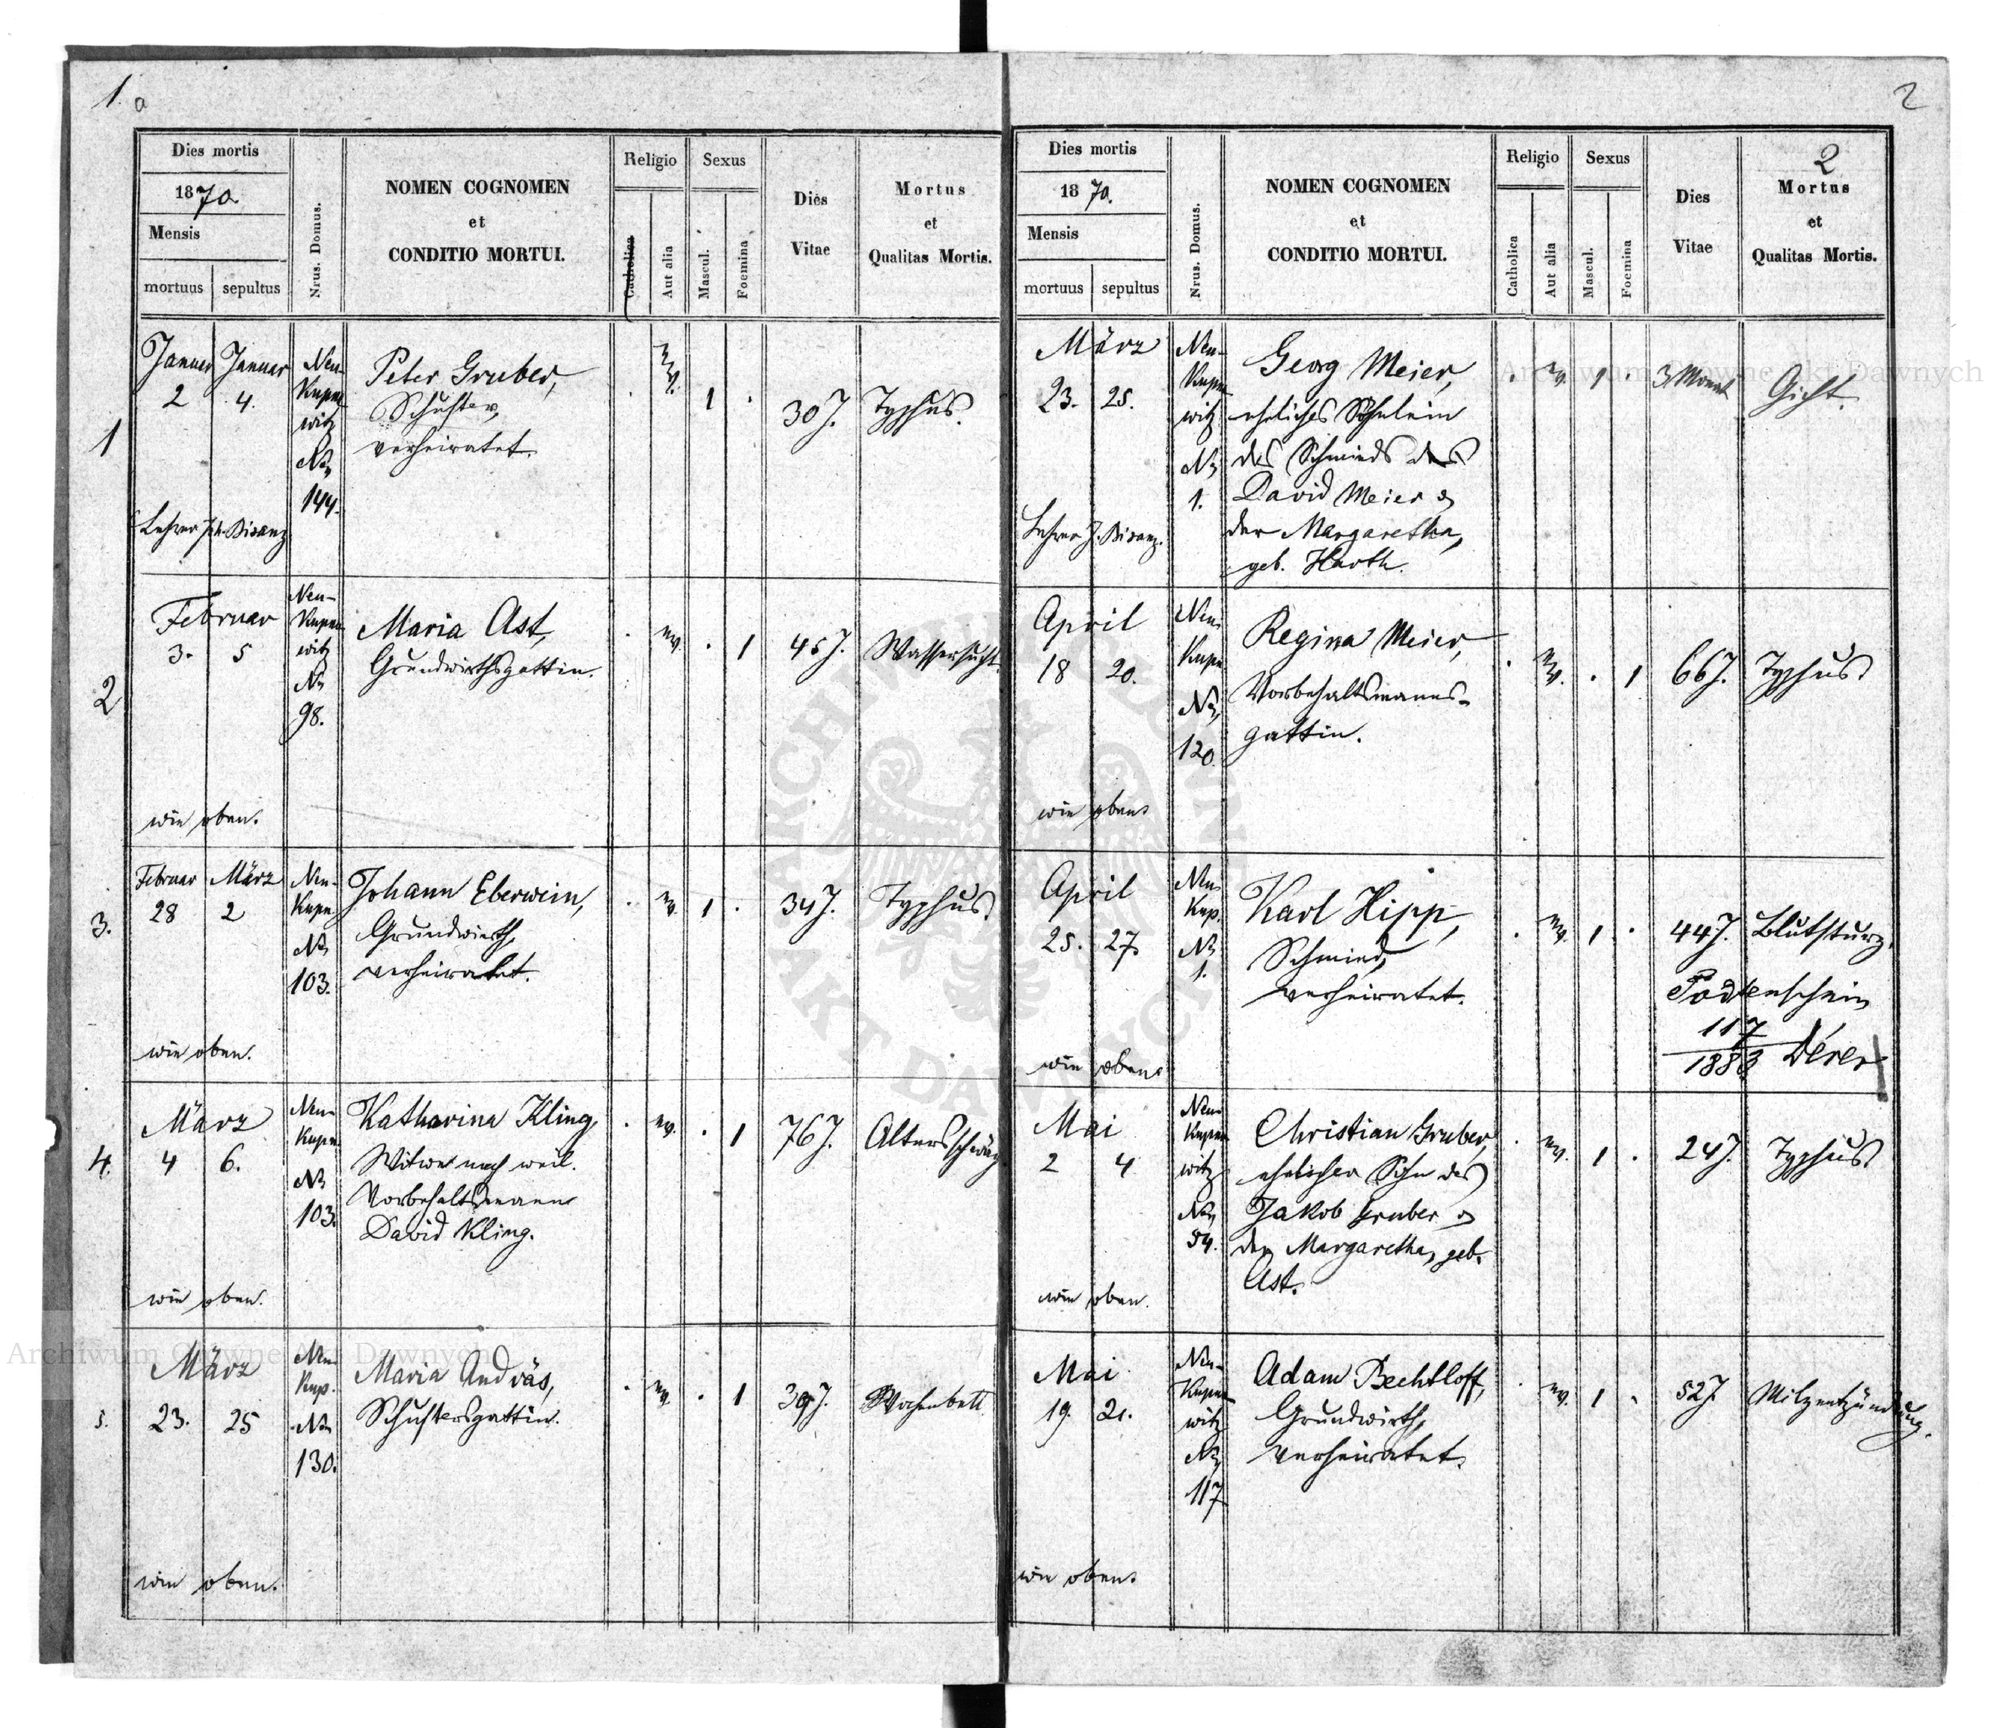 1. a
Dies mortis
1870.
Mensis
mortuus
sepultus
Nrus. Domus.
NOMEN COGNOMEN
et
CONDITIO MORTUI.
Religio
Catholica
Aut alia
Sexus
Mascul.
Foemina
Dies
Vitae
Mortus
et
Qualitas Mortis.
1
Januar
2
Januar
4.
Lehrer Joh. Bisanz
Neu-
Kupno
witz
No
144.
Peter Gruber,
Schuster,
verheiratet.
ev.
1
30 J.
Typhus.
2
Februar
3. 5
wie oben.
Neu-
Kupno
witz
No
98.
Maria Ast,
Grundwirthsgattin.
ev.
1
45 J.
Wassersucht.
3.
Februar
28
März
2
wie oben.
Neu-
Kupn.
No
103.
Johann Eberwein,
Grundwirth,
verheiratet.
ev.
1
34 J.
Typhus.
4.
März
4 6.
wie oben.
Neu-
Kupn.
No
103.
Katharina Kling,
Witwe nach weil.
Vorbehaltsmann
David Kling.
ev.
1
76 J.
Altersschwäche
5.
März
23. 25
wie oben.
Neu-
Kup.
No
130.
Maria Andräs,
Schustersgattin.
ev.
1
39 J.
Wochenbett
2
Dies mortis
1870.
Mensis
mortuus
sepultus
Nrus. Domus.
NOMEN COGNOMEN
et
CONDITIO MORTUI.
Religio
Catholica
Aut alia
Sexus
Mascul.
Foemina
Dies
Vitae
2
Mortus
et
Qualitas Mortis.
März
23. 25.
Lehrer J. Bisanz.
Neu-
Kupno
witz
No
1.
Georg Meier,
eheliches Söhnlein
des Schmieds des
David Meier &
der Margaretha,
geb. Harth.
ev.
1
3 Monat
Gicht.
April
18 20.
wie oben
Neu
Kupn
No
120.
Regina Meier,
Vorbehaltsmanns-
gattin.
ev.
1
66 J.
Typhus
April
25. 27.
wie oben
Neu
Kup.
No
1.
Karl Hipp,
Schmied,
verheiratet.
ev.
1
44 J.
Blutsturz.
Todtenschein
117
1883
Mai
2 4
wie oben.
Neu-
Kupno
witz
No
54.
Christian Gruber,
ehelicher Sohn des
Jakob Gruber &
der Margaretha, geb.
Ast.
ev.
1
24 J.
Typhus
Mai
19. 21.
wie oben.
Neu-
Kupno
witz
No
117
Adam Bechtloff,
Grundwirth,
verheiratet.
ev.
1
52 J
Milzentzündung.
Archiwum Główne Akt Dawnych
Archiwum Główne Akt Dawnych
ARCHIWUM GŁÓWNE AKT DAWNYCH